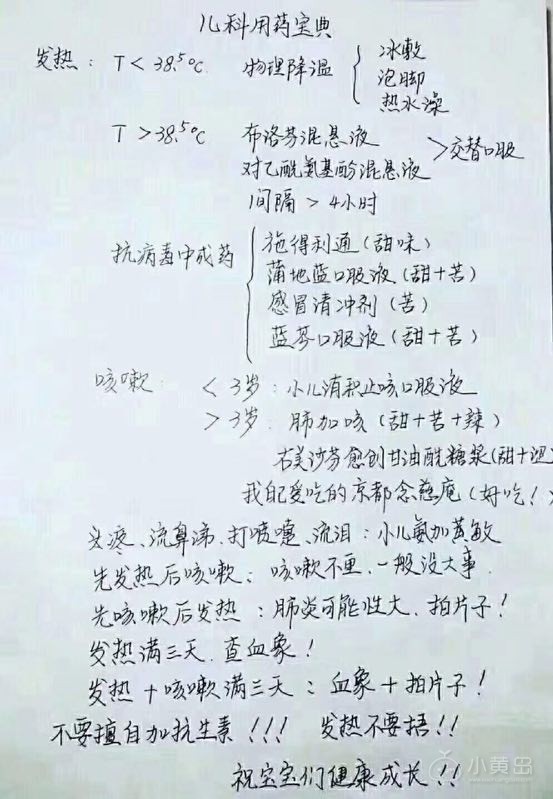 儿科用药宝典
发热： T＜38.5℃ 物理降温 冰敷
泡脚
热水澡
T＞38.5℃ 布洛芬混悬液
对乙酰氨基酚混悬液 ＞交替口服
间隔＞4小时
抗病毒中成药 施得利通（甜味）
蒲地蓝口服液（甜+苦）
感冒清冲剂（苦）
蓝芩口服液（甜+苦）
咳嗽： ＜3岁：小儿消积止咳口服液
＞3岁：肺加咳（甜+苦+辣）
右美沙芬愈创甘油酰糖浆（甜+
我自己爱吃的京都念慈庵（好吃！）
头疼、流鼻涕、打喷嚏、流泪：小儿氨加黄敏
先发热后咳嗽：咳嗽不重，一般没大事.
先咳嗽后发热：肺炎可能性大，拍片子！
发热满三天.查血象！
发热+咳嗽满三天：血象+拍片子！
不要擅自加抗生素！！！ 发热不要捂！！
祝宝宝们健康成长！！
小黄鸟